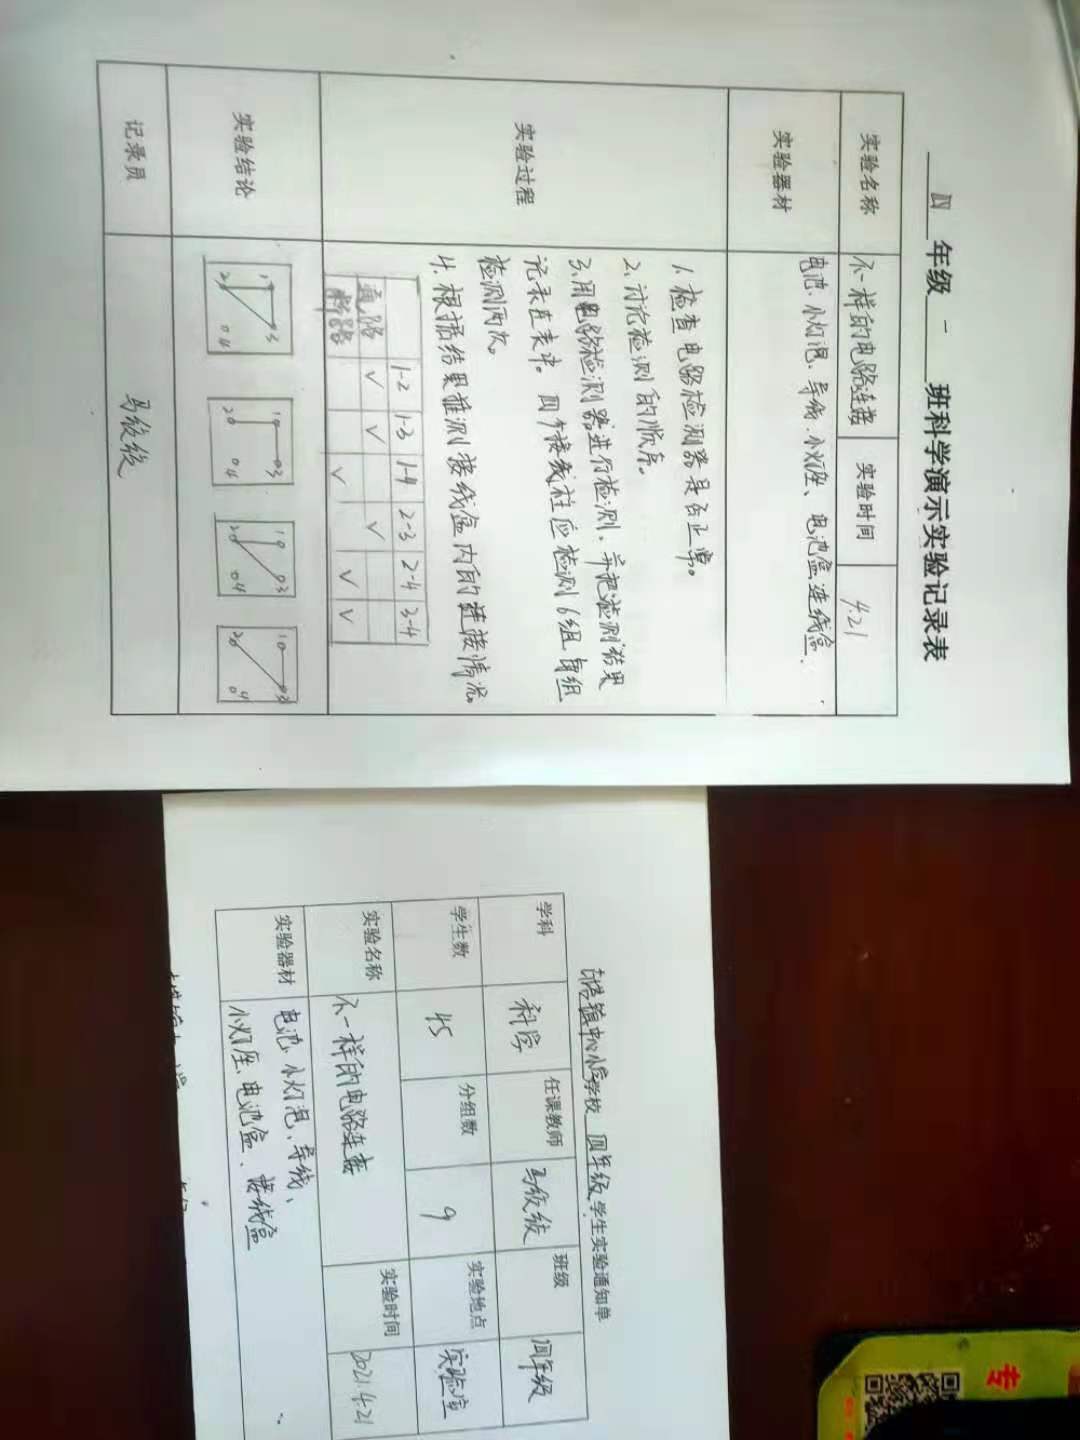 四 年级 一 班科学演示实验记录表
实验名称 不一样的电路连接 实验时间 4.21
实验器材 电池、小灯泡、导线、小灯座、电池盒、连线盒.
实验过程
1. 检查电路检测器是否正常。
2. 讨论检测的顺序。
3. 用电路检测器进行检测，并把检测结果
记录在表中。四个接线柱应检测6组 每组
检测两次。
4. 根据结果推测接线盒内的连接情况。
1-2 1-3 1-4 2-3 2-4 3-4
通路 √ √ √
断路 √ √ √
实验结论
1 3
2 4
1 3
2 4
1 3
2 4
1 3
2 4
记录员
镇中心小学校 四年级学生实验通知单
学科 科学 任课教师 班级 四年级
学生数 45 分组数 9 实验地点 实验室
实验名称 不一样的电路连接 实验时间 2021.4.21
实验器材 电池、小灯泡、导线、
小灯座、电池盒、接线盒
专